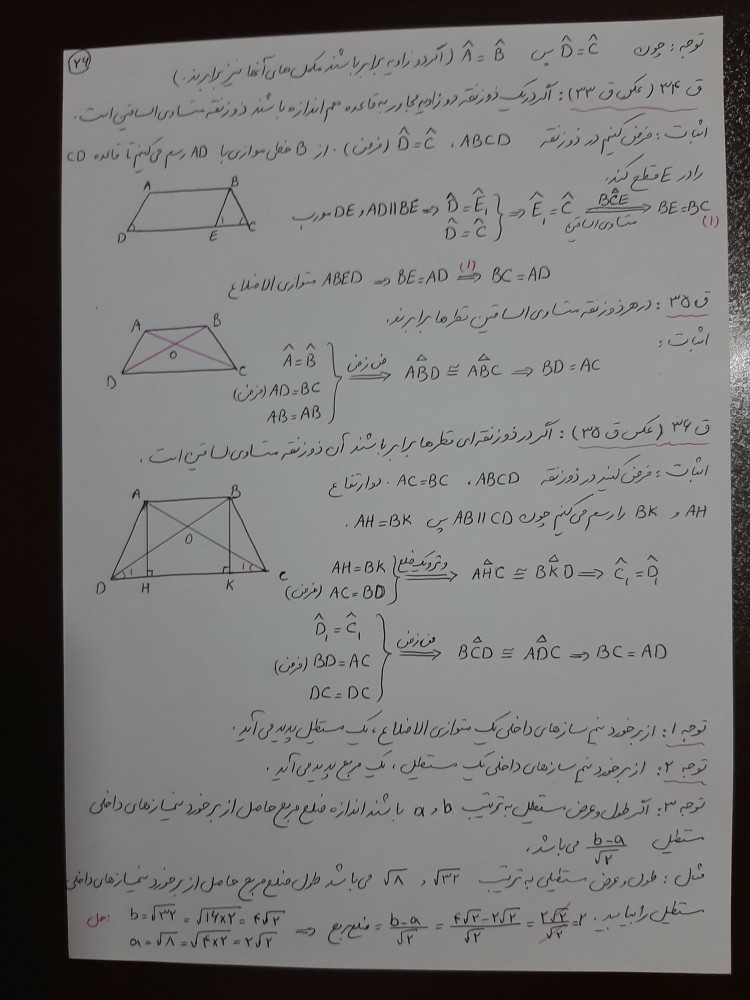 ۲۶
توجه: چون D̂ = Ĉ پس Â = B̂ (اگر دو زاویه برابر باشند مکمل های آنها نیز برابرند.)
ق ۳۴ (عکس ق ۳۳): اگر در یک ذوزنقه دو زاویه مجاور به قاعده هم اندازه باشند ذوزنقه متساوی الساقین است.
اثبات: فرض کنیم در ذوزنقه ABCD، D̂ = Ĉ (فرض). از B خطی موازی با AD رسم می کنیم تا قاعده CD
را در E قطع کند.
A B D E C 1
AD∥BE و DE مورب ⇒ D̂ = Ê₁
D̂ = Ĉ } ⇒ Ê₁ = Ĉ ⇒ BCE متساوی الساقین BE = BC (1)
ABED متوازی الاضلاع ⇒ BE = AD ⇒(1) BC = AD
ق ۳۵: در هر ذوزنقه متساوی الساقین قطرها برابرند.
اثبات:
A B O D C
Â = B̂
(فرض) AD = BC
AB = AB } ض ز ض ⇒ ABD ≅ ABC ⇒ BD = AC
ق ۳۶ (عکس ق ۳۵): اگر در ذوزنقه ای قطرها برابر باشند آن ذوزنقه متساوی لساقین است.
اثبات: فرض کنید در ذوزنقه ABCD، AC = BC. دو ارتفاع
AH و BK را رسم می کنیم چون AB∥CD پس AH = BK.
A B O D 1 H K 1 C
AH = BK
(فرض) AC = BD } وتر و یک ضلع ⇒ AHC ≅ BKD ⇒ Ĉ₁ = D̂₁
D̂₁ = Ĉ₁
(فرض) BD = AC
DC = DC } ض ز ض ⇒ BCD ≅ ADC ⇒ BC = AD
توجه ۱: از برخورد نیم سازهای داخلی یک متوازی الاضلاع، یک مستطیل پدید می آید.
توجه ۲: از برخورد نیم سازهای داخلی یک مستطیل، یک مربع پدید می آید.
توجه ۳: اگر طول و عرض مستطیل به ترتیب b و a باشند اندازه ضلع مربع حاصل از برخورد نیمسازهای داخلی
مستطیل (b-a)/√۲ می باشد.
مثال: طول و عرض مستطیلی به ترتیب √۳۲ و √۸ می باشد طول ضلع مربع حاصل از برخورد نیمسازهای داخلی
مستطیل را بیابید.
حل b = √۳۲ = √(۱۶×۲) = ۴√۲
a = √۸ = √(۴×۲) = ۲√۲ ⇒ ضلع مربع = (b-a)/√۲ = (۴√۲-۲√۲)/√۲ = ۲√۲/√۲ = ۲